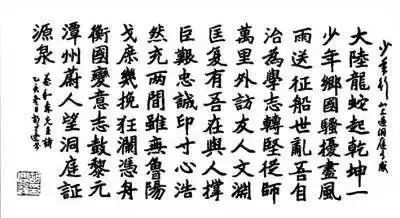 少年行 北上過洞庭有感
大陸龍蛇起乾坤一
少年鄉國騷擾盡風
雨送征船世亂吾自
治為學志轉堅從師
萬里外訪友人文淵
匡復有吾在與人撐
巨艱忠誠印寸心浩
然充兩間雖無魯陽
戈庶幾挽狂瀾憑舟
衡國變意志鼓黎元
潭州蔚人望洞庭証
源泉
蔡和森
乙亥冬日